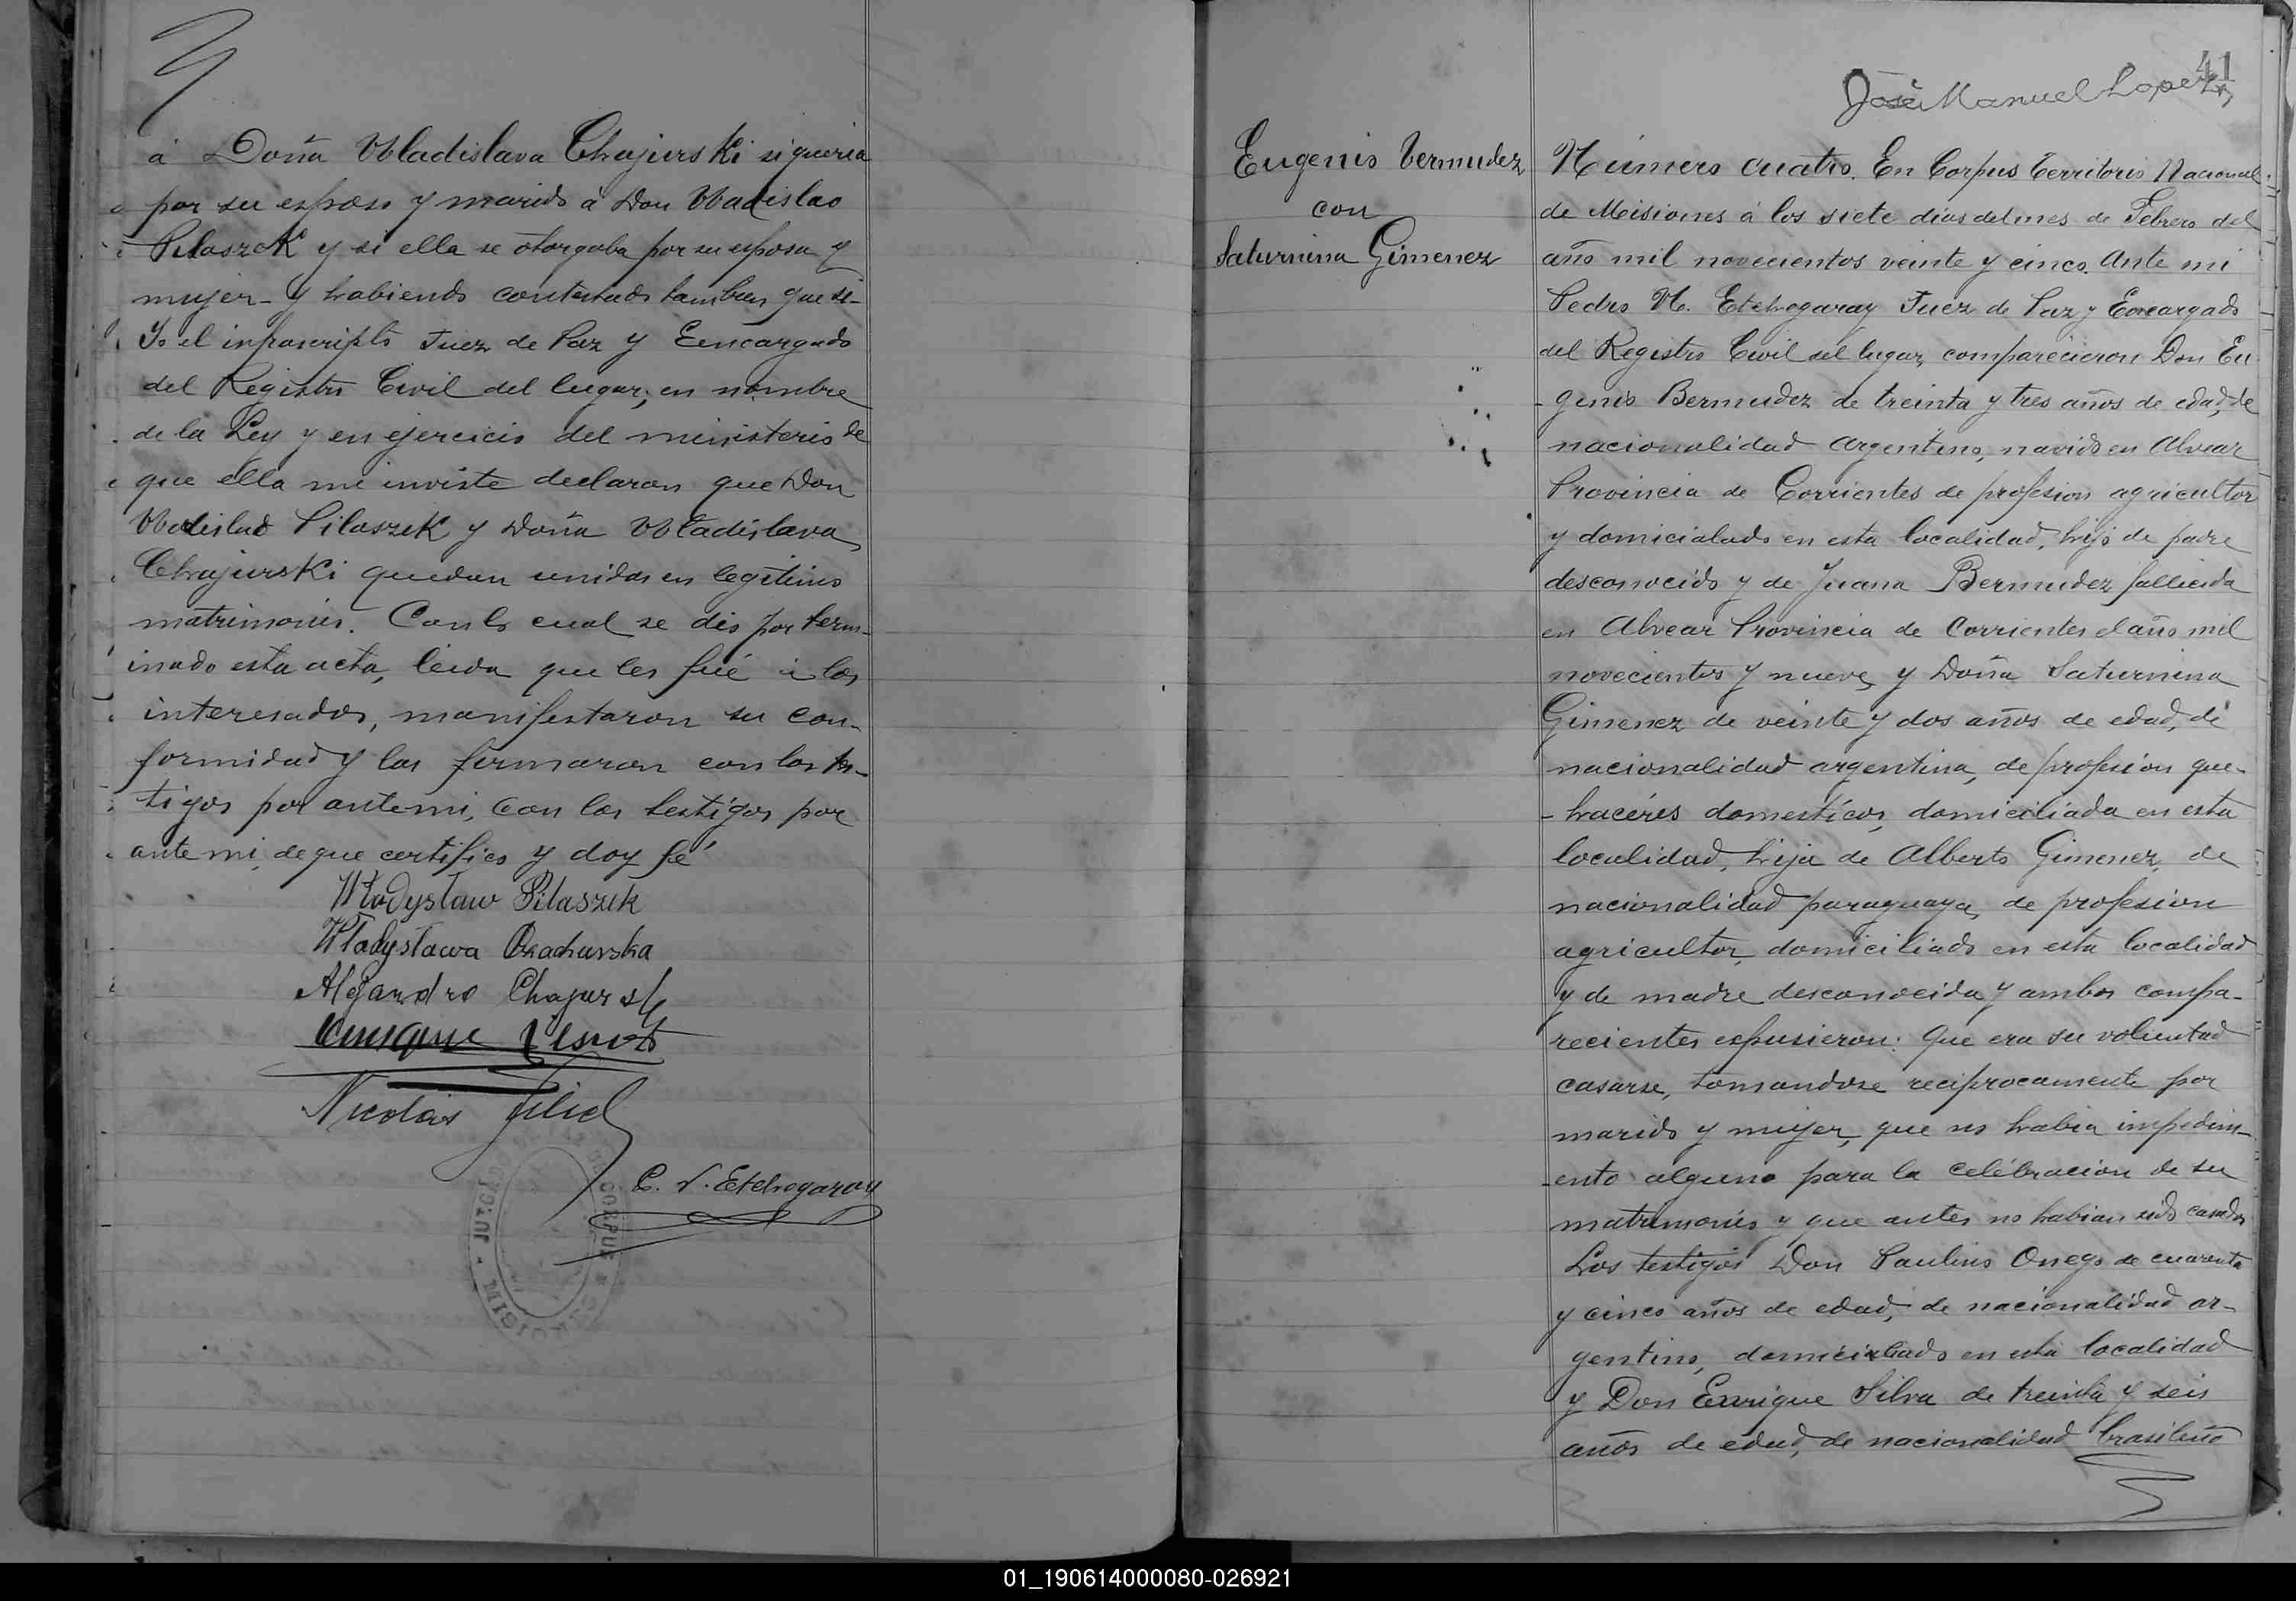 á Doña Wladislava Chajurski si queria
por su esposo y marido á Don Wadislao
Pilaszek y si ella se otorgaba por su esposa y
mujer - y habiendo contestado tambien que si -
Yo el infrascripto Juez de Paz y Eencargado
del Registro Civil del lugar, en nombre
de la Ley y en ejercicio del ministerio de
que ella me inviste declaron que Don
Wadislao Pilaszek y Doña Wladislava
Chajurski quedan unidos en legitimo
matrimonio. Con lo cual se dio por term-
inado esta acta, leida que les fué á los
interesados, manifestaron su con-
formidad y las firmaron con los tes-
tigos por ante mi, con los testigos por
ante mi, de que certifico y doy fé
Władysław Pilaszek
Władysława
Alejandro Chajurski
Enrique
Nicolás
P. N. Etchegaray
JUZGADO DE PAZ CORPUS MISIONES
41
José Manuel Lopez
Eugenio Vermudez
con
Saturnina Gimenez
Número cuatro. En Corpus Territorio Nacional
de Misiones á los siete dias del mes de Febrero del
año mil novecientos veinte y cinco. Ante mi
Pedro N. Etchegaray Juez de Paz y Encargado
del Registro Civil del lugar, comparecieron Don Eu
-genio Bermudez de treinta y tres años de edad, de
nacionalidad argentino, navido en Alvear
Provincia de Corrientes de profesion agricultor
y domicialado en esta localidad, hijo de padre
desconocido y de Juana Bermudez fallecida
en Alvear Provincia de Corrientes el año mil
novecientos y nueve, y Doña Saturnina
Gimenez de veinte y dos años de edad, de
nacionalidad argentina, de profesion que-
-hacéres domesticos, domiciliada en esta
localidad, hija de Alberto Gimenez, de
nacionalidad paraguaya, de profesion
agricultor, domiciliado en esta localidad
y de madre desconocida y ambos compa-
recientes espusieron: Que era su voluntad
casarse, tomandose reciprocamente por
marido y mujer, que no habia impedim-
-ento alguno para la celébracion de su
matrimonio y que antes no habian sido casados
Los testigos Don Paulino Onego de cuarenta
y cinco años de edad, de nacionalidad ar-
gentino, domiciliado en esta localidad
y Don Enrique Silva de treinta y seis
años de edad, de nacionalidad brasileño
01_190614000080-026921